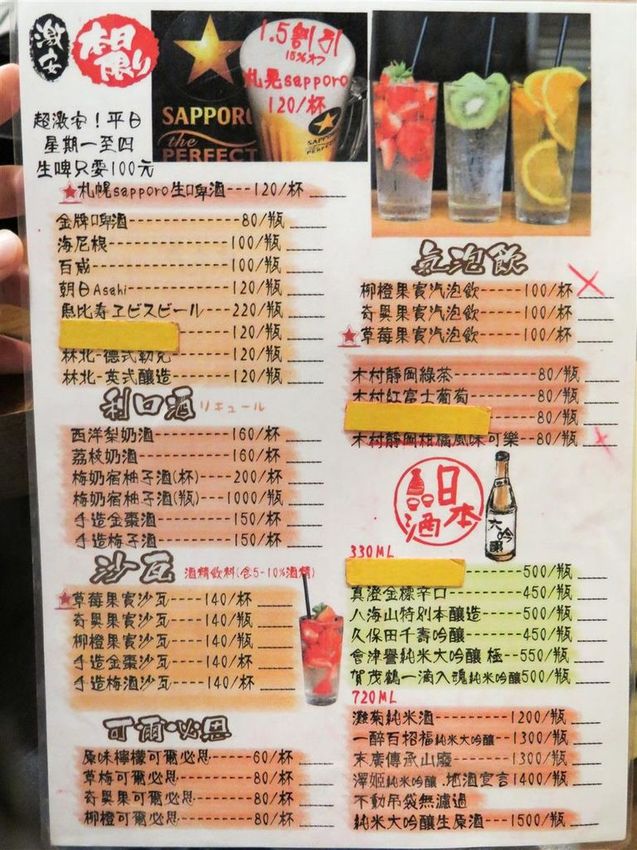 激安
本日限り
SAPPORO
the
PERFECT
1.5割引
15%オフ
札幌sapporo
120/杯
SAPPORO
超激安！平日
星期一至四
生啤只要100元
★札幌sapporo生啤酒---120/杯
金牌啤酒---80/瓶
海尼根---100/瓶
百威---100/瓶
朝日Asahi---120/瓶
恵比寿ヱビスビール---220/瓶
---120/瓶
林北-德式勒克---120/瓶
林北-英式釀造---120/瓶
利口酒 リキュール
西洋梨奶酒---160/杯
荔枝奶酒---160/杯
梅奶宿柚子酒(杯)---200/杯
梅奶宿柚子酒(瓶)---1000/瓶
手造金棗酒---150/杯
手造梅子酒---150/杯
沙瓦 酒精飲料(含5-10%酒精)
★草莓果實沙瓦---140/杯
奇異果實沙瓦---140/杯
柳橙果實沙瓦---140/杯
手造金棗沙瓦---140/杯
手造梅酒沙瓦---140/杯
可爾必思
原味檸檬可爾必思---60/杯
草莓可爾必思---80/杯
奇異果可爾必思---80/杯
柳橙可爾必思---80/杯
氣泡飲
柳橙果實汽泡飲---100/杯
奇異果實汽泡飲---100/杯
★草莓果實汽泡飲---100/杯
木村靜岡綠茶---80/瓶
木村紅富士葡萄---80/瓶
---80/瓶
木村靜岡柑橘風味可樂--80/瓶
日本酒
大吟釀
330ML
---500/瓶
真澄金標辛口---450/瓶
八海山特別本釀造---500/瓶
久保田千壽吟釀---450/瓶
會津譽純米大吟釀 極--550/瓶
賀茂鶴一滴入魂純米吟釀500/瓶
720ML
灘菊純米酒---1200/瓶
一醉百招福純米大吟釀--1300/瓶
末廣傳承山廢---1300/瓶
澤姬純米吟釀.地酒宣言1400/瓶
不動吊袋無濾過
純米大吟釀生原酒---1500/瓶